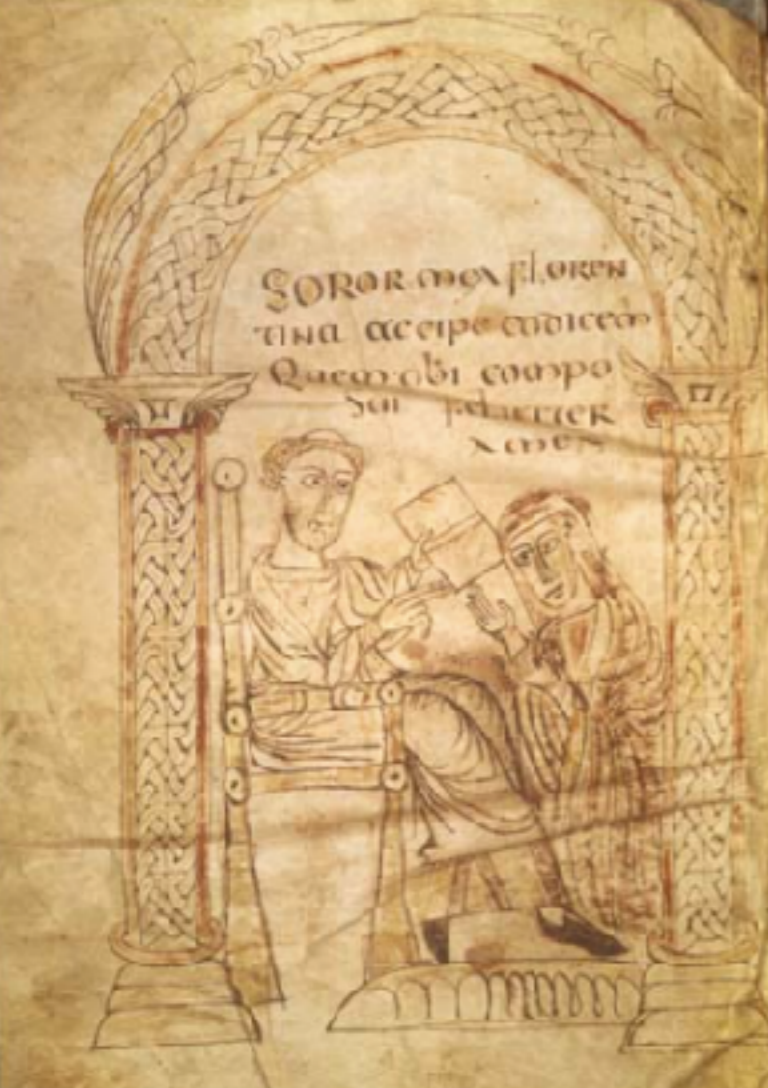 SOROR mea FLOREN
TINA accipe codicem
Quem tibi compo
sui feliciter
amen